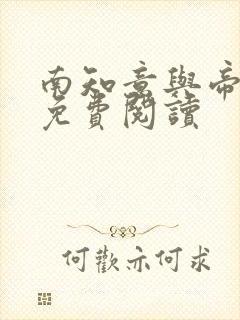 南知意與帝
免費閱讀
何歡亦何求